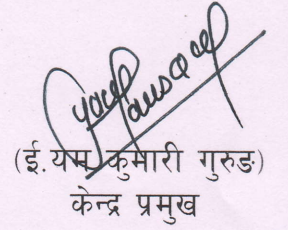 (ई.यम कुमारी गुरुङ)
केन्द्र प्रमुख